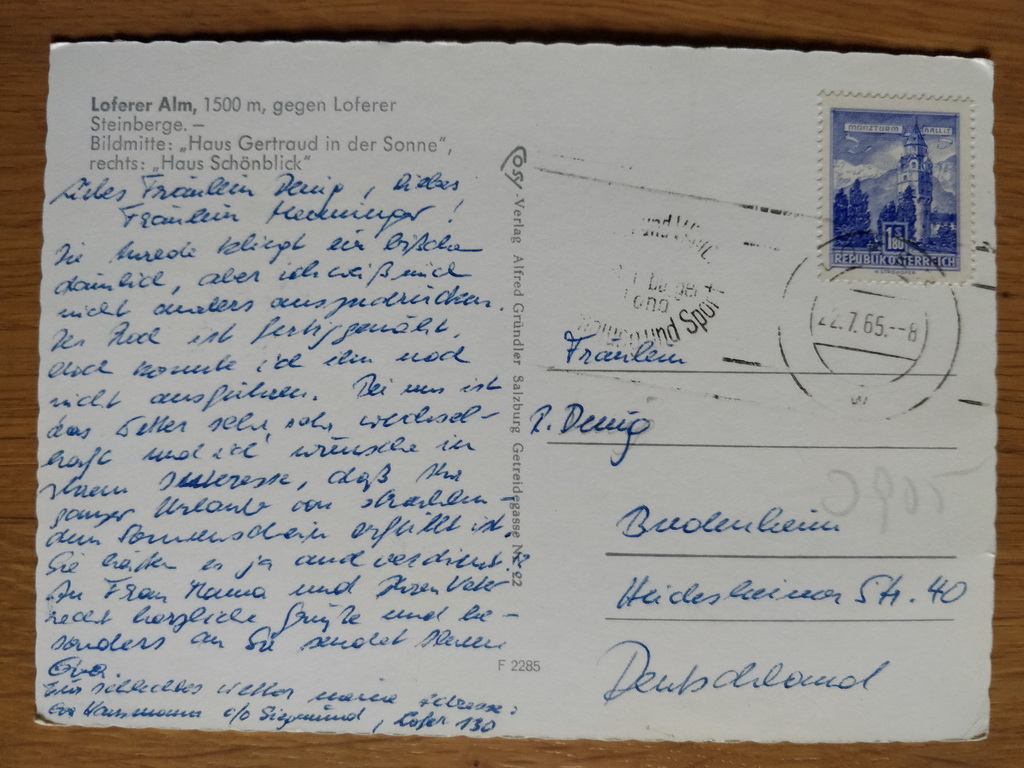 Loferer Alm, 1500 m, gegen Loferer
Steinberge. –
Bildmitte: „Haus Gertraud in der Sonne“,
rechts: „Haus Schönblick“
Liebes Fräulein Denig, liebes
Fräulein Menninger!
Die Anrede klingt ein bißchen
dämlich, aber ich weiß mich
nicht anders auszudrücken.
Der Rock ist fertiggenäht,
doch konnte ich ihn noch
nicht ausführen. Bei uns ist
das Wetter sehr sehr wechsel-
haft und ich wünsche in
Ihrem Interesse, daß Ihr
ganzer Urlaub von strahlen-
dem Sonnenschein erfüllt ist.
Sie hätten es ja auch verdient.
An Frau Mama und Ihren Vater
recht herzliche Grüße und be-
sonders an Sie sendet Ihnen
Eva.
Für schlechtes Wetter meine Adresse:
Eva c/o Siegmund, Lofer 130
Cosy-Verlag Alfred Gründler Salzburg Getreidegasse Nr. 22
F 2285
MÜNZTURM HALL I.T.
1.80
REPUBLIK ÖSTERREICH
22.7.65.--8
und Spor
Fräulein
R. Denig
Budenheim
Heidesheimer Str. 40
Deutschland